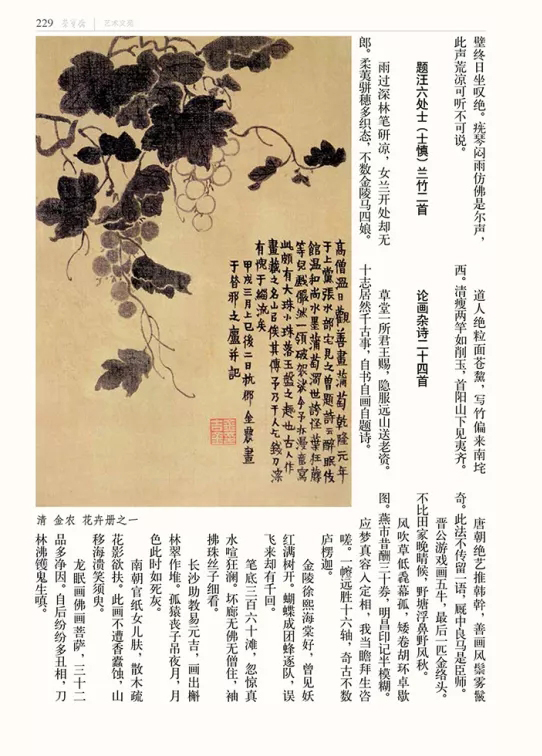 229 荣宝斋 | 艺术文苑
壁终日坐叹绝。疣琴闷雨仿佛是尔声，
此声荒凉可听不可说。
题汪六处士（士慎）兰竹二首
雨过深林笔研凉，女兰开处却无
郎。柔荑骈穗多织态，不数金陵马四娘。
道人绝粒面苍黧，写竹偏来南垞
西。清瘦两竿如削玉，首阳山下见夷齐。
论画杂诗二十四首
草堂一所君王赐，隐服远山送老资。
十志居然千古事，自书自画自题诗。
高僧温日觀善畫蒲萄乾隆元年
于上黨張水部宅見之曾題詩云醉眠
館温和尚水墨蒲萄濁世誇怪葉枯藤
等兒戯儼然一領破袈裟今予亦漫意寫
此頗有大珠小珠落玉盤之趣也古人作
畫載之名山呂俟其傳予乃干人乞錢刀深
有愧于緇流矣
甲戌三月上巳後二日杭郡金農畫
于昔邪之廬并記
清 金农 花卉册之一
唐朝绝艺推韩幹，善画风鬃雾鬣
奇。此法不传留一语，厩中良马是臣师。
晋公游戏画五牛，最后一匹金络头。
不比田家晚晴候，野塘浮鼻野风秋。
风吹草低毳幕孤，矮卷胡环卓歇
图。燕市昔酬三十券，明昌印记半模糊。
应梦真容入定相，我当瞻拜生咨
嗟。一帧远胜十六轴，奇古不数
庐楞迦。
金陵徐熙海棠好，曾见妖
红满树开。蝴蝶成团蜂逐队，误
飞来却有千回。
笔底三百六十滩，忽惊真
水喧狂澜。坏廊无佛无僧住，袖
拂珠丝子细看。
长沙助教易元吉，画出槲
林翠作堆。孤猿丧子吊夜月，月
色此时如死灰。
南朝官纸女儿肤，散木疏
花影欲扶。此画不遭香蠹蚀，山
移海溃笑须臾。
龙眠画佛画菩萨，三十二
品多净因。自后纷纷多丑相，刀
林沸镬鬼生嗔。